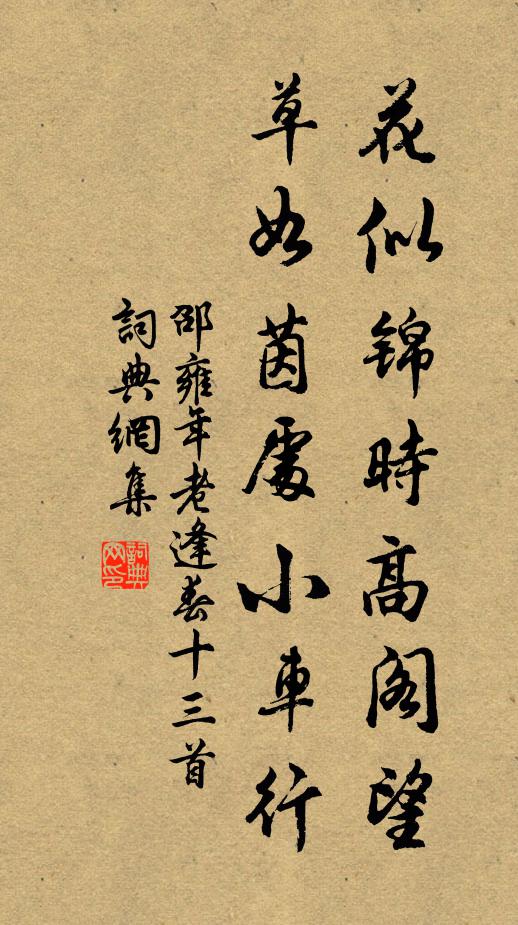 花似锦時高阁望
草如茵處小車行
邵雍年老逢春十三首
詞典網集
詞典網印